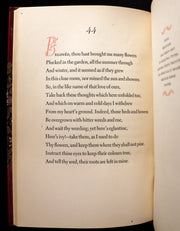 44
Belovèd, thou hast brought me many flowers
Plucked in the garden, all the summer through
And winter, and it seemed as if they grew
In this close room, nor missed the sun and showers.
So, in the like name of that love of ours,
Take back these thoughts which here unfolded too,
And which on warm and cold days I withdrew
From my heart's ground. Indeed, those beds and bowers
Be overgrown with bitter weeds and rue,
And wait thy weeding; yet here's eglantine,
Here's ivy!—take them, as I used to do
Thy flowers, and keep them where they shall not pine.
Instruct thine eyes to keep their colours true,
And tell thy soul, their roots are left in mine.